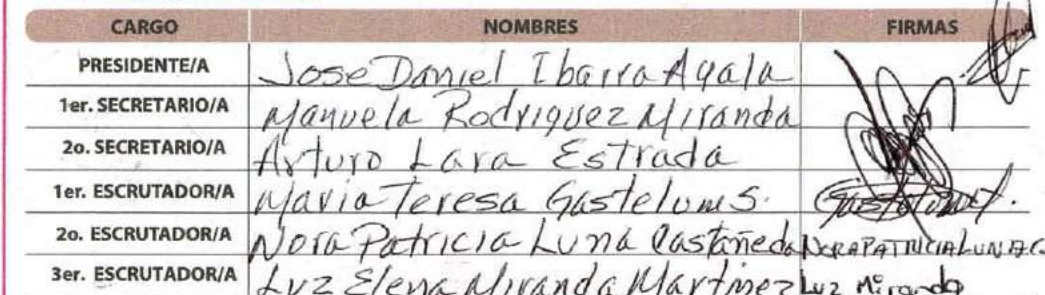 CARGO NOMBRES FIRMAS
PRESIDENTE/A Jose Daniel Ibarra Ayala
1er. SECRETARIO/A Manuela Rodriguez Miranda
2o. SECRETARIO/A Arturo Lara Estrada
1er. ESCRUTADOR/A Maria Teresa Gastelum S. Gastelum
2o. ESCRUTADOR/A Nora Patricia Luna Castañeda NORA PATRICIA LUNA C
3er. ESCRUTADOR/A Luz Elena Miranda Martinez Luz Miranda